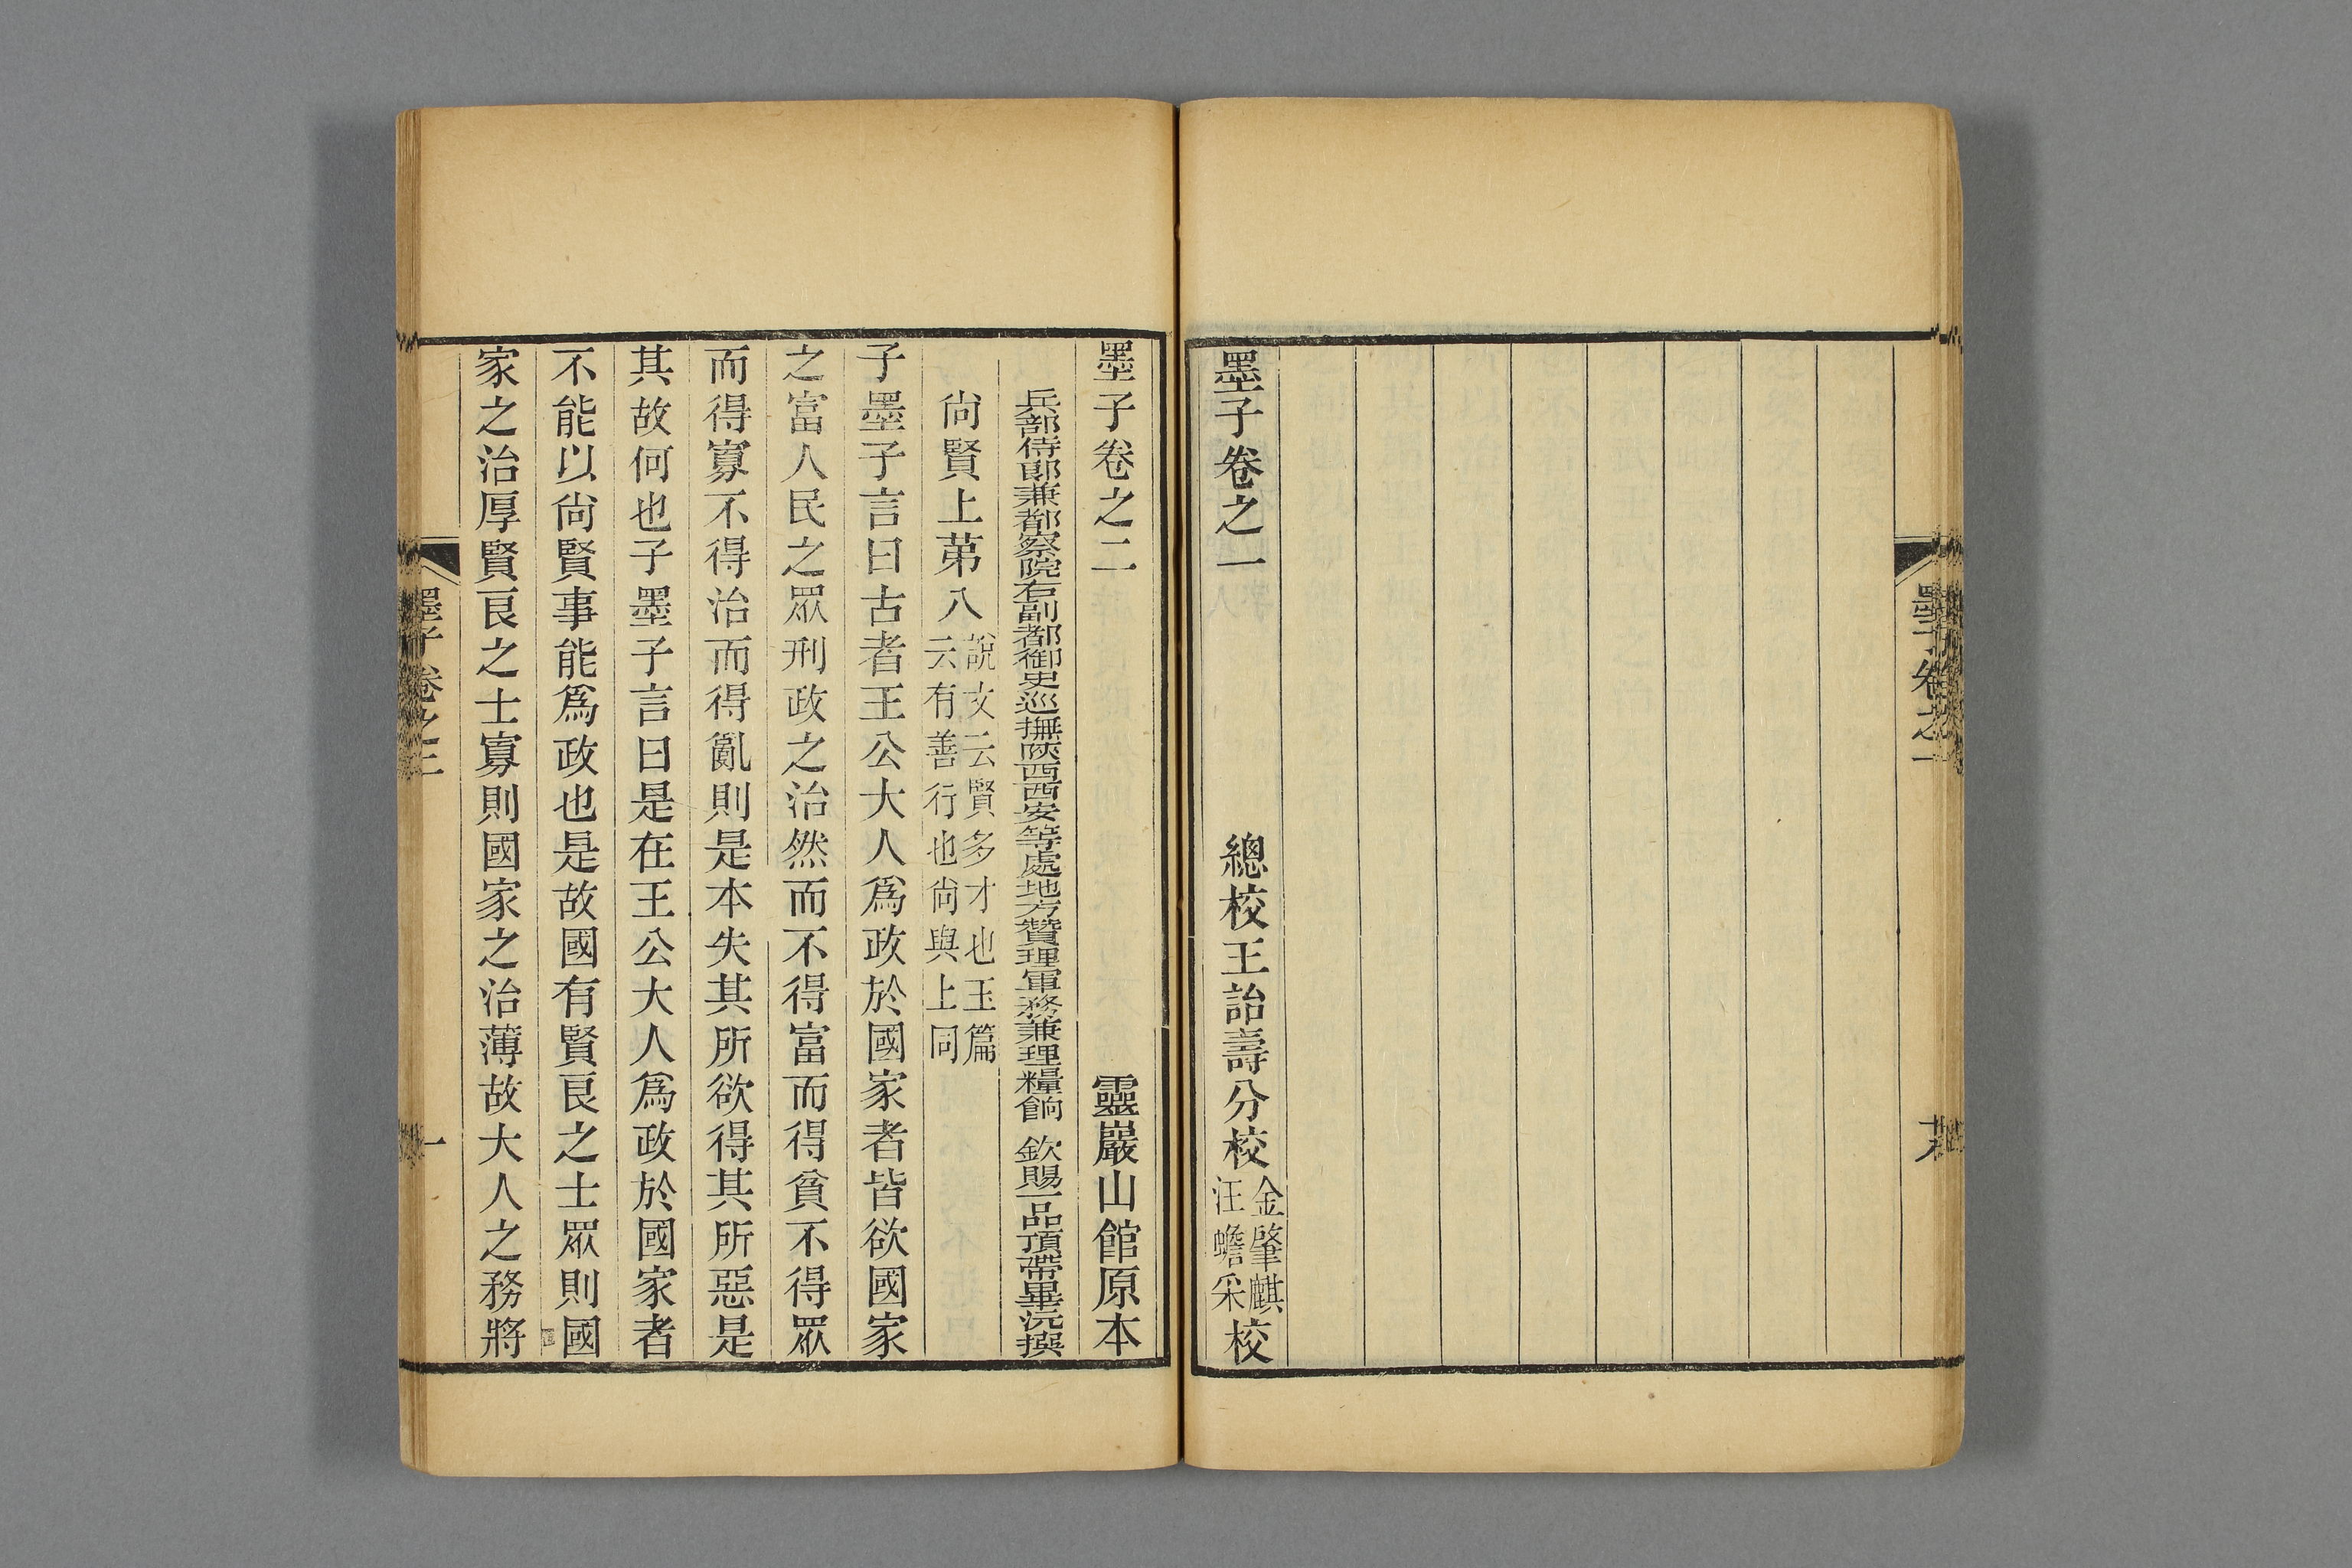 墨子卷之一
墨子卷之一 總校王詒壽分校 金肇麒 汪蟾采 校
墨子卷之二 靈巖山館原本
兵部侍郎兼都察院右副都御史巡撫陝西西安等處地方贊理軍務兼理糧餉 欽賜一品頂帶畢沅撰
尙賢上苐八 說文云賢多才也玉篇
云有善行也尙與上同
子墨子言曰古者王公大人爲政於國家者皆欲國家
之富人民之眾刑政之治然而不得富而得貧不得眾
而得寡不得治而得亂則是本失其所欲得其所惡是
其故何也子墨子言曰是在王公大人爲政於國家者
不能以尙賢事能爲政也是故國有賢良之士眾則國
家之治厚賢良之士寡則國家之治薄故大人之務將
墨子卷之二 一